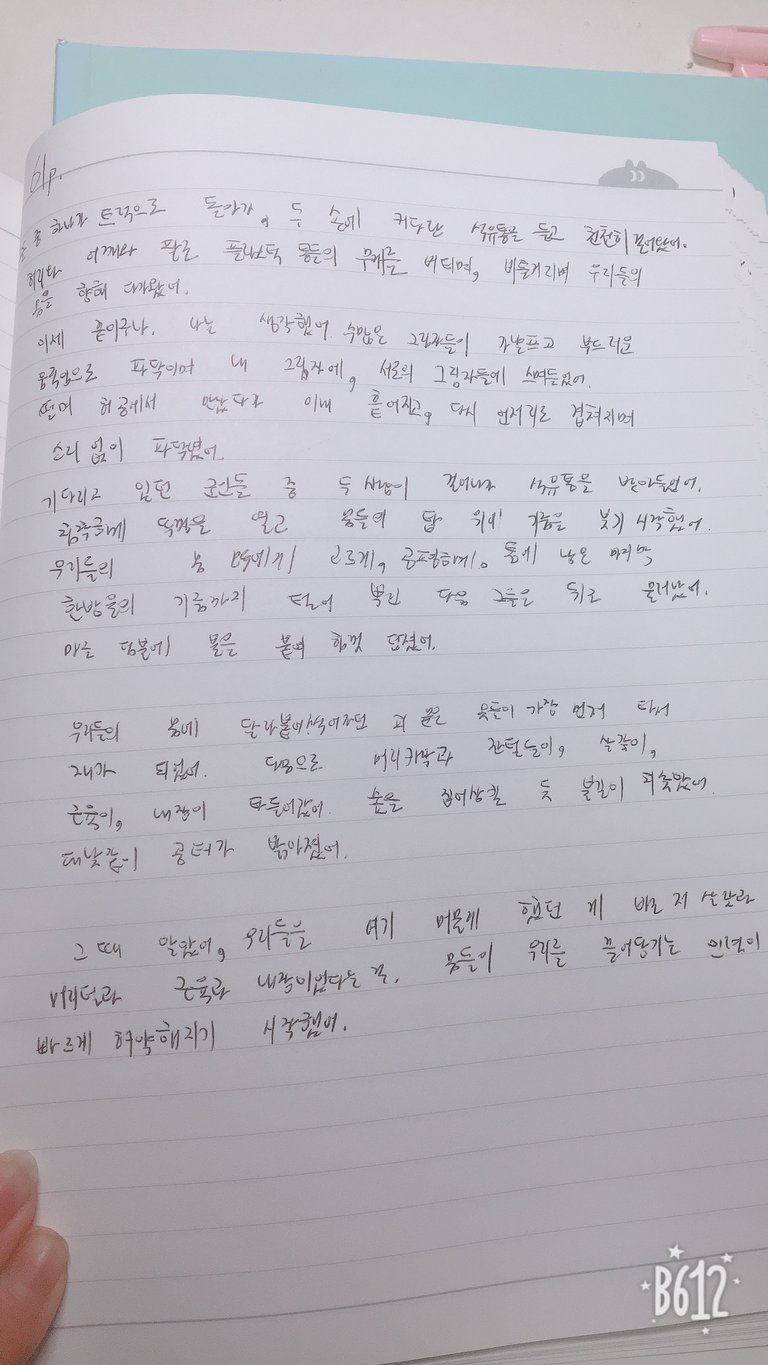 61p.
중 하나가 트럭으로 돌아가, 두 손에 커다란 석유통을 들고 천천히 걸어왔어.
허리와 어깨와 팔로 플라스틱 통들의 무게를 버티며, 비틀거리며 우리들의
몸을 향해 다가왔어.
이제 끝이구나, 나는 생각했어. 수많은 그림자들이 가냘프고 부드러운
움직임으로 파닥이며 내 그림자에, 서로의 그림자들에 스며들었어.
떨며 허공에서 만났다가 이내 흩어지고, 다시 언저리로 겹쳐지며
소리 없이 파닥였어.
기다리고 있던 군인들 중 두 사람이 걸어나와 석유통을 받아들었어.
침착하게 뚜껑을 열고 몸들의 탑 위에 기름을 붓기 시작했어.
우리들의 몸 고르게, 공평하게. 통에 남은 마지막
한방울의 기름까지 털어 뿌린 다음 그들은 뒤로 물러났어.
마른 덤불에 불을 붙여 힘껏 던졌어.
우리들의 몸에 달라붙어 썩어가던 피 묻은 옷들이 가장 먼저 타서
재가 되었어. 다음으로 머리카락과 잔털들이, 살갗이,
근육이, 내장이 타들어갔어. 숲을 집어삼킬 듯 불길이 치솟았어.
대낮같이 공터가 밝아졌어.
그 때 알았어, 우리들을 여기 머물게 했던 게 바로 저 살갗과
머리털과 근육과 내장이었다는 걸. 몸들이 우리를 끌어당기는 인력이
빠르게 허약해지기 시작했어.
B612